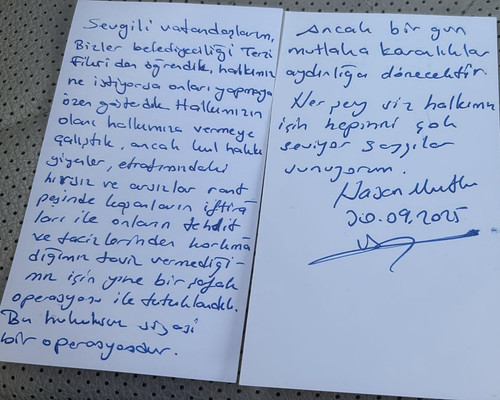 Sevgili vatandaşlarım,
Bizler belediyeciliği Terzi
Fikri'den öğrendik, halkımız
ne istiyorsa onları yapmaya
özen gösterdik Halkımızın
olanı halkımıza vermeye
çalıştık, ancak kul hakkı
yiyenler, etrafımdaki
hırsız ve arsızlar rant
peşinde koşanların iftira
ları ile onların tehdit
ve tacizlerinden korkma
dığımız taviz vermediği-
miz için yine bir şafak
operasyonu ile tutuklandık.
Bu hukuksuz siyasi
bir operasyondur.
Ancak bir gün
mutlaka karanlıklar
aydınlığa dönecektir.
Her şey siz halkımız
için hepinizi çok
seviyor saygılar
sunuyorum.
Hasan Mutlu
20.09.2025